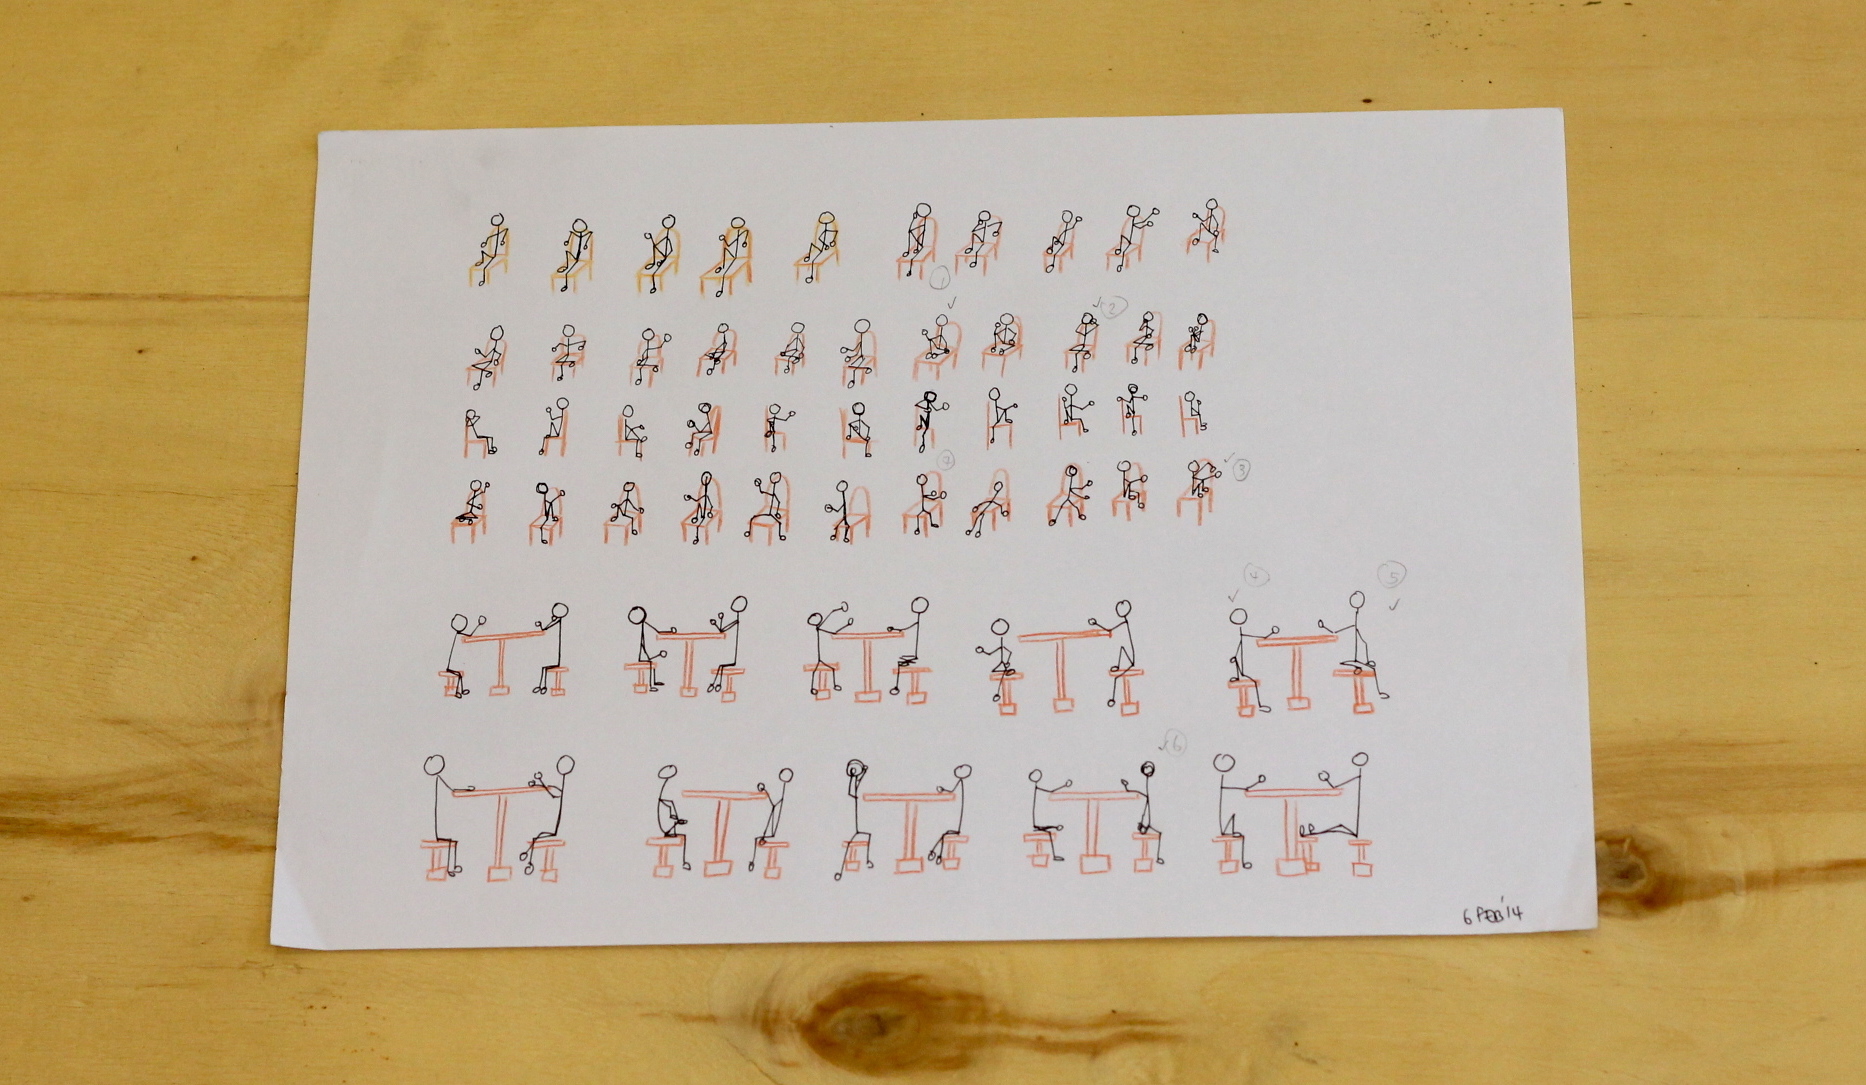 1
2
7
3
4
5
6
6 FEB '14